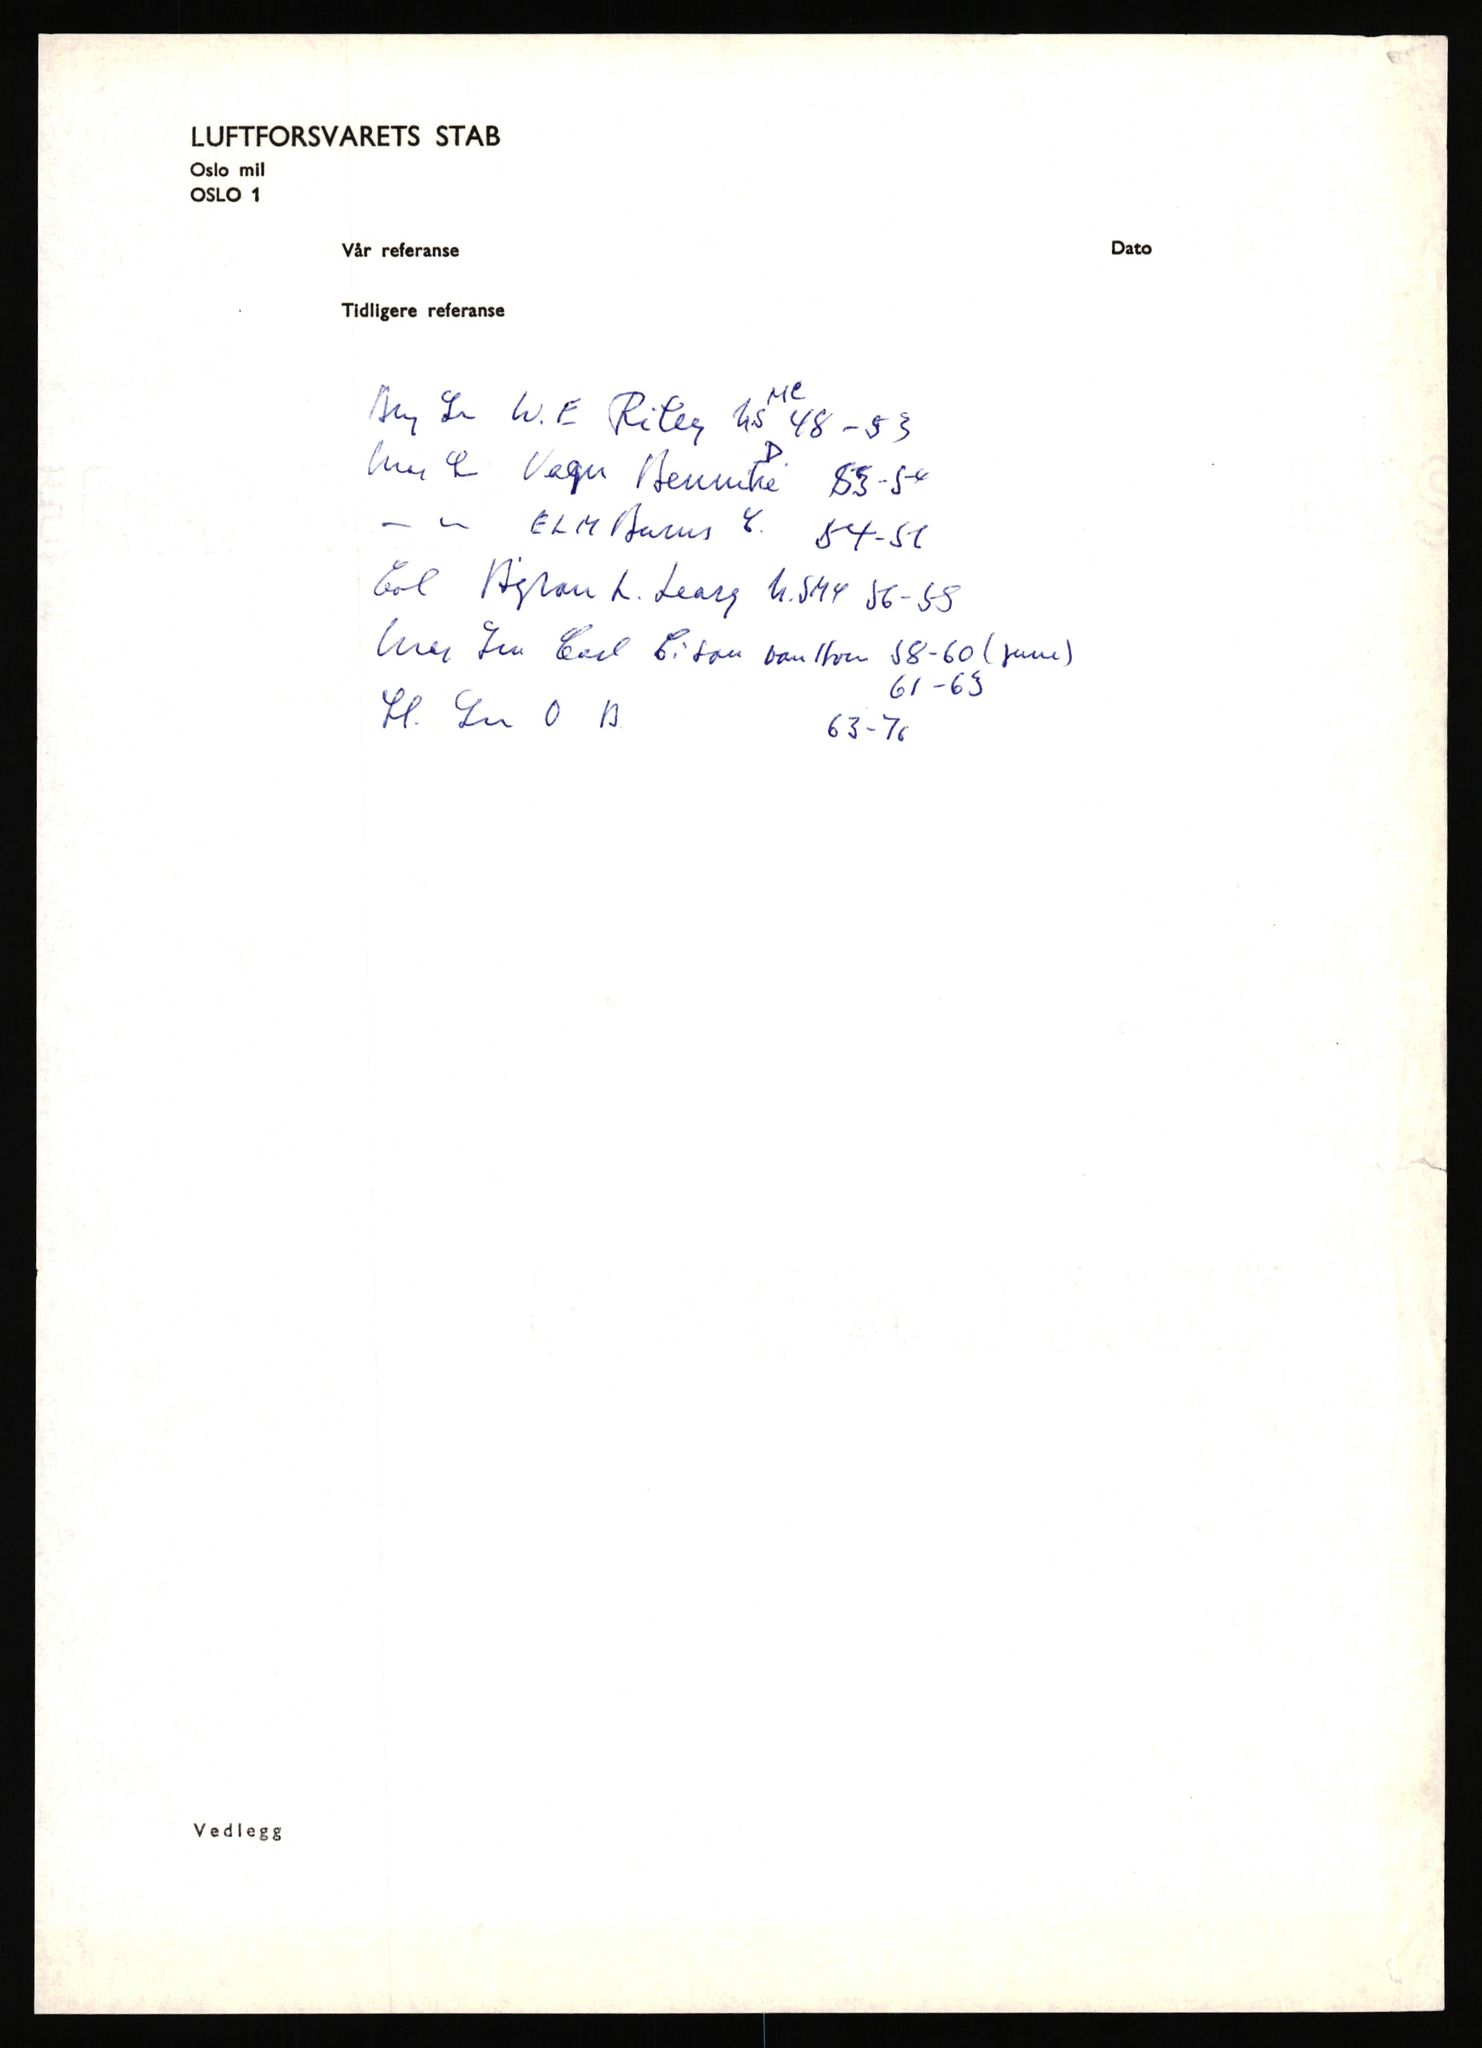 LUFTFORSVARETS STAB
Oslo mil
OSLO 1
Vår referanse
Dato
Tidligere referanse
W. E Riley US MC 48 - 53
Vagn Bennike D 53 - 54
ELM Burns C. 54 - 56
Col Byron L. Leary 56 - 58
Carl Carlson von Horn 58 - 60 (june)
61 - 63
Lt. Gen O B. 63 - 70
Vedlegg